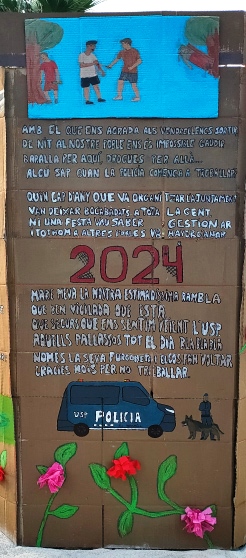 AMB EL QUE ENS AGRADA ALS VENDRELLENCS SORTIR
DE NIT AL NOSTRE POBLE ENS ES IMPOSSIBLE GAUDIR
BARALLA PER AQUÍ DROGUES PER ALLÀ...
ALGU SAP QUAN LA POLICIA COMENÇA A TREBALLAR
QUIN CAP D'ANY QUE VA ORGANITZAR L'AJUNTAMENT
VAN DEIXAR BOCABADATS A TOTA LA GENT
NI UNA FESTA VAU SABER GESTIONAR
I TOTHOM A ALTRES
2024
MARE MEVA LA NOSTRA ESTIMADÍSSIMA RAMBLA
QUE BEN VIGILADA QUE ESTÀ
QUE SEGUR QUE EMS SENTIM VEIENT L'USP
AQUELLS PALLASSOS TOT EL DIA
NOMES LA SEVA FURGONETA I ELS GOS FAN POLTAR
GRACIES NOIS PER NO TREBALLAR.
USP POLICIA